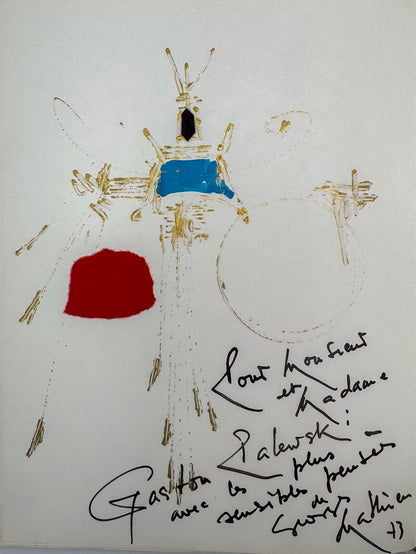 Pour Monsieur
et Madame
Gaston Palewski :
avec les plus
sensibles pensées
de
Georges
Mathieu
73